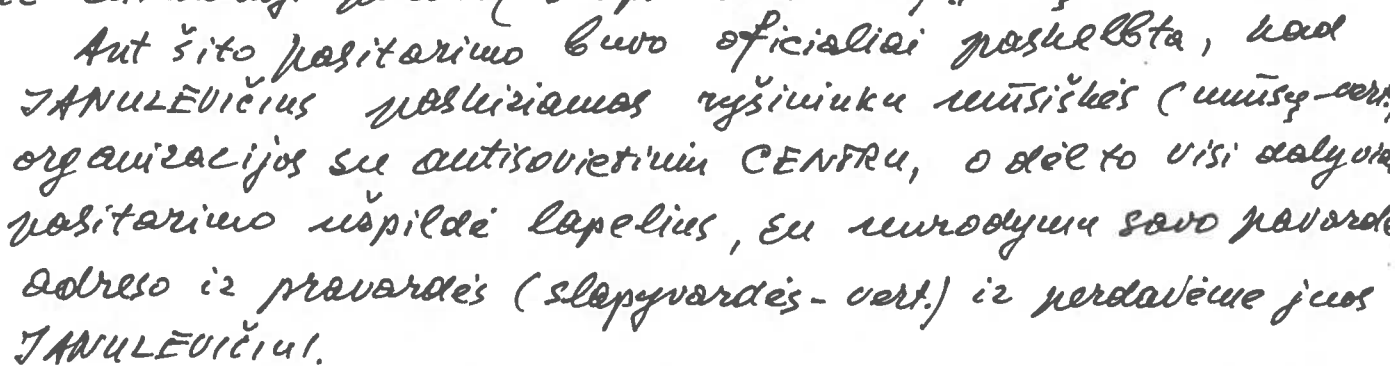 Ant šito pasitarimo buvo oficialiai paskelbta, kad
JANULEVIČIUS paskiriamas ryšininku mūsiškės (mūsų-vert.
organizacijos su antisovietiniu CENTRU, o dėl to visi dalyviai
pasitarimo užpildė lapelius, su nurodymu savo pavardė
adreso ir pravardės (slapyvardės-vert.) ir perdavėme juos
JANULEVIČIUI.